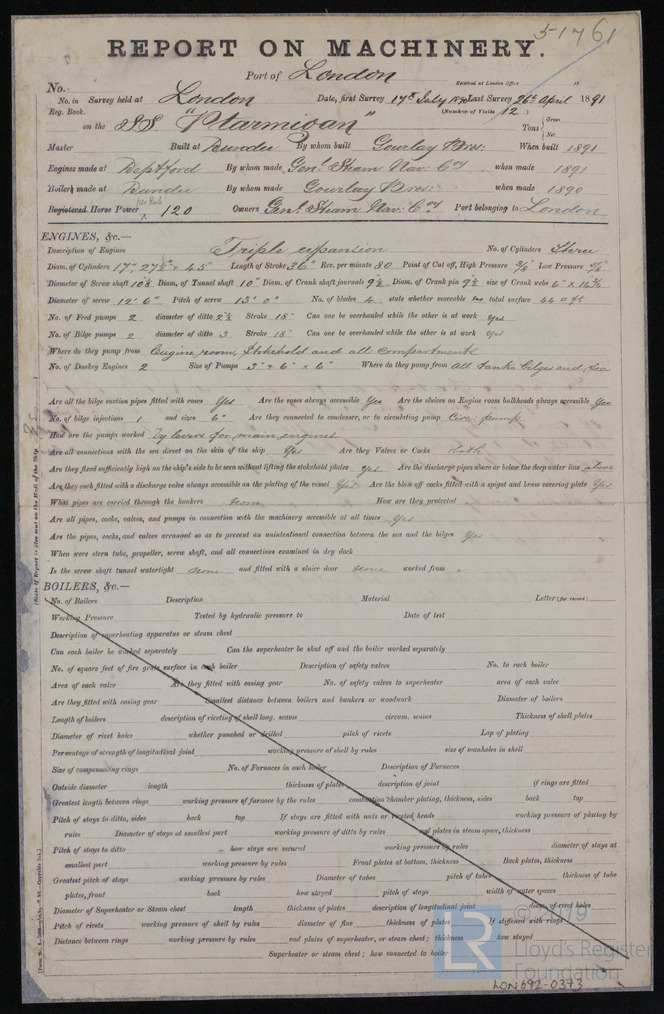 51761
REPORT ON MACHINERY.
Port of London
No. Received at London Office 18
No. in Survey held at London Date, first Survey 17th July 1890 Last Survey 26th April 1891
Reg. Book. (Number of Visits 12)
on the S.S. "Ptarmigan" Tons Gross Net
Master Built at Dundee By whom built Gourlay Bros: When built 1891
Engines made at Deptford By whom made Genl Steam Nav: Coy when made 1891
Boilers made at Dundee By whom made Gourlay Bros: when made 1890
Registered Horse Power 120 Owners Genl Steam Nav: Coy Port belonging to London
ENGINES, &c.—
Description of Engines Triple expansion No. of Cylinders Three
Diam. of Cylinders Length of Stroke 36" Rev. per minute 80 Point of Cut off, High Pressure Low Pressure
Diameter of Screw shaft Diam. of Tunnel shaft 10" Diam. of Crank shaft journals Diam. of Crank pin size of Crank webs
Diameter of screw 12' 6" Pitch of screw 13' 0" No. of blades 4 state whether moveable no total surface 44 ft
No. of Feed pumps 2 diameter of ditto Stroke 18" Can one be overhauled while the other is at work yes
No. of Bilge pumps 2 diameter of ditto 3 Stroke 18" Can one be overhauled while the other is at work yes
Where do they pump from Engine room, Stokehold and all compartments
No. of Donkey Engines 2 Size of Pumps Where do they pump from all tanks bilges and sea
Are all the bilge suction pipes fitted with roses Yes Are the roses always accessible Yes Are the sluices on Engine room bulkheads always accessible Yes
No. of bilge injections 1 and sizes 6" Are they connected to condenser, or to circulating pump Circ. pump
How are the pumps worked by levers for main engines
Are all connections with the sea direct on the skin of the ship Yes Are they Valves or Cocks both
Are they fixed sufficiently high on the ship's side to be seen without lifting the stokehold plates Yes Are the discharge pipes above or below the deep water line above
Are they each fitted with a discharge valve always accessible on the plating of the vessel Yes Are the blow off cocks fitted with a spigot and brass covering plate Yes
What pipes are carried through the bunkers none How are they protected
Are all pipes, cocks, valves, and pumps in connection with the machinery accessible at all times yes
Are the pipes, cocks, and valves arranged so as to prevent an unintentional connection between the sea and the bilges Yes
When were stern tube, propeller, screw shaft, and all connections examined in dry dock
Is the screw shaft tunnel watertight none and fitted with a sluice door none worked from
BOILERS, &c.—
No. of Boilers Description Material Letter (for record)
Working Pressure Tested by hydraulic pressure to Date of test
Description of superheating apparatus or steam chest
Can each boiler be worked separately Can the superheater be shut off and the boiler worked separately
No. of square feet of fire grate surface in each boiler Description of safety valves No. to each boiler
Area of each valve Are they fitted with easing gear No. of safety valves to superheater area of each valve
Are they fitted with easing gear Smallest distance between boilers and bunkers or woodwork Diameter of boilers
Length of boilers description of riveting of shell long. seams circum. seams Thickness of shell plates
Diameter of rivet holes whether punched or drilled pitch of rivets Lap of plating
Percentage of strength of longitudinal joint working pressure of shell by rules size of manholes in shell
Size of compensating rings No. of Furnaces in each boiler Description of Furnaces
Outside diameter length thickness of plates description of joint if rings are fitted
Greatest length between rings working pressure of furnace by the rules combustion chamber plating, thickness, sides back top
Pitch of stays to ditto, sides back top If stays are fitted with nuts or riveted heads working pressure of plating by
rules Diameter of stays at smallest part working pressure of ditto by rules end plates in steam space, thickness
Pitch of stays to ditto how stays are secured working pressure by rules diameter of stays at
smallest part working pressure by rules Front plates at bottom, thickness Back plates, thickness
Greatest pitch of stays working pressure by rules Diameter of tubes pitch of tubes thickness of tube
plates, front back how stayed pitch of stays width of water spaces
Diameter of Superheater or Steam chest length thickness of plates description of longitudinal joint diam. of rivet holes
Pitch of rivets working pressure of shell by rules diameter of flue thickness of plates If stiffened with rings
Distance between rings working pressure by rules end plates of superheater, or steam chest; thickness how stayed
Superheater or steam chest; how connected to boiler
© 2019
Lloyd's Register
Foundation
LON692-0373